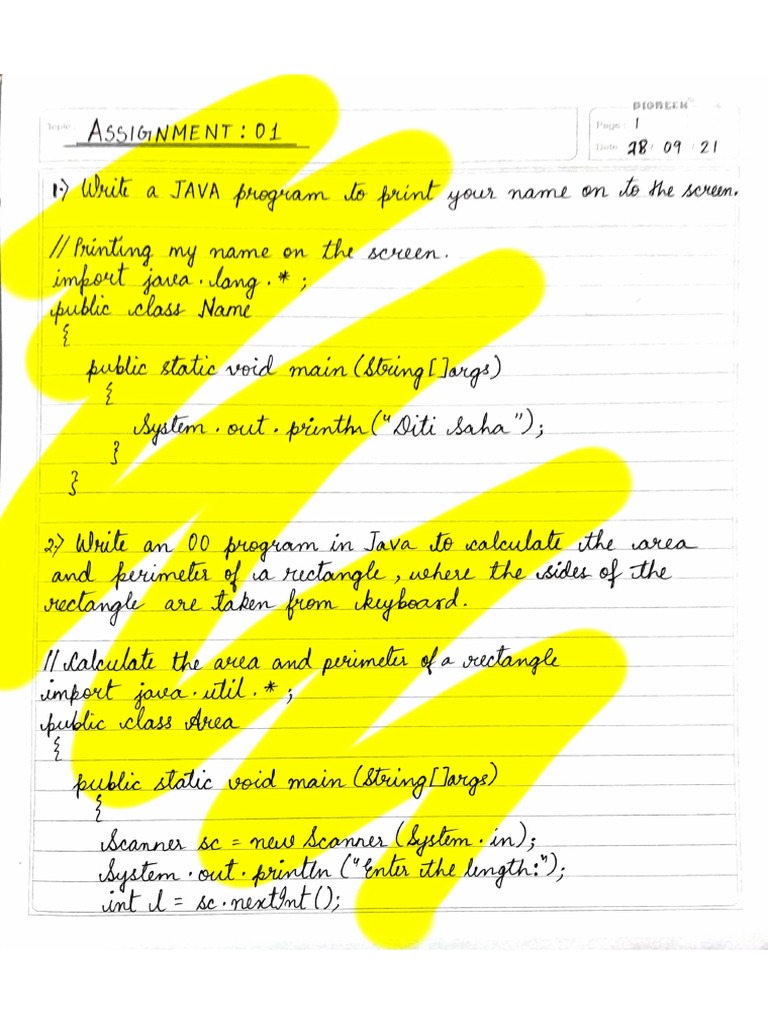 PIONEER
Topic ASSIGNMENT: 01
Page: 1
Date: 28 09 21
1.) Write a JAVA program to print your name on to the screen.
// Printing my name on the screen.
import java.lang.*;
public class Name
{
public static void main (String[]args)
{
System.out.println("Diti Saha");
}
}
2.) Write an OO program in Java to calculate the area
and perimeter of a rectangle, where the sides of the
rectangle are taken from keyboard.
// Calculate the area and perimeter of a rectangle
import java.util.*;
public class Area
{
public static void main (String[]args)
{
Scanner sc = new Scanner (System.in);
System.out.println ("Enter the length:");
int l = sc.nextInt();